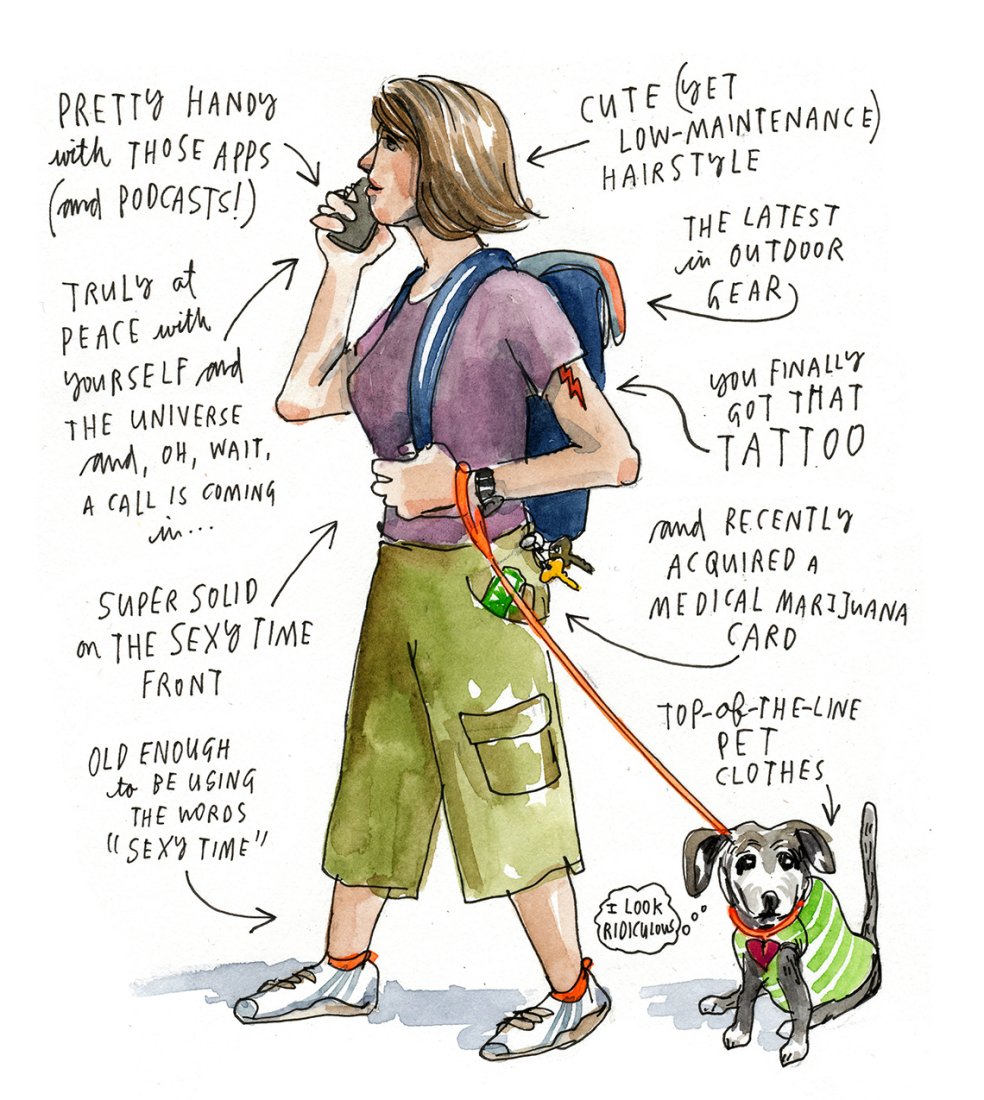 PRETTY HANDY
with THOSE APPS
(and PODCASTS!)
CUTE (YET
LOW-MAINTENANCE)
HAIRSTYLE
THE LATEST
in OUTDOOR
GEAR
TRULY at
PEACE with
YOURSELF and
THE UNIVERSE
and, OH, WAIT,
A CALL IS COMING
in...
YOU FINALLY
GOT THAT
TATTOO
and RECENTLY
ACQUIRED A
MEDICAL MARIJUANA
CARD
SUPER SOLID
on THE SEXY TIME
FRONT
TOP-of-THE-LINE
PET
CLOTHES
OLD ENOUGH
to BE USING
THE WORDS
"SEXY TIME"
I LOOK
RIDICULOUS